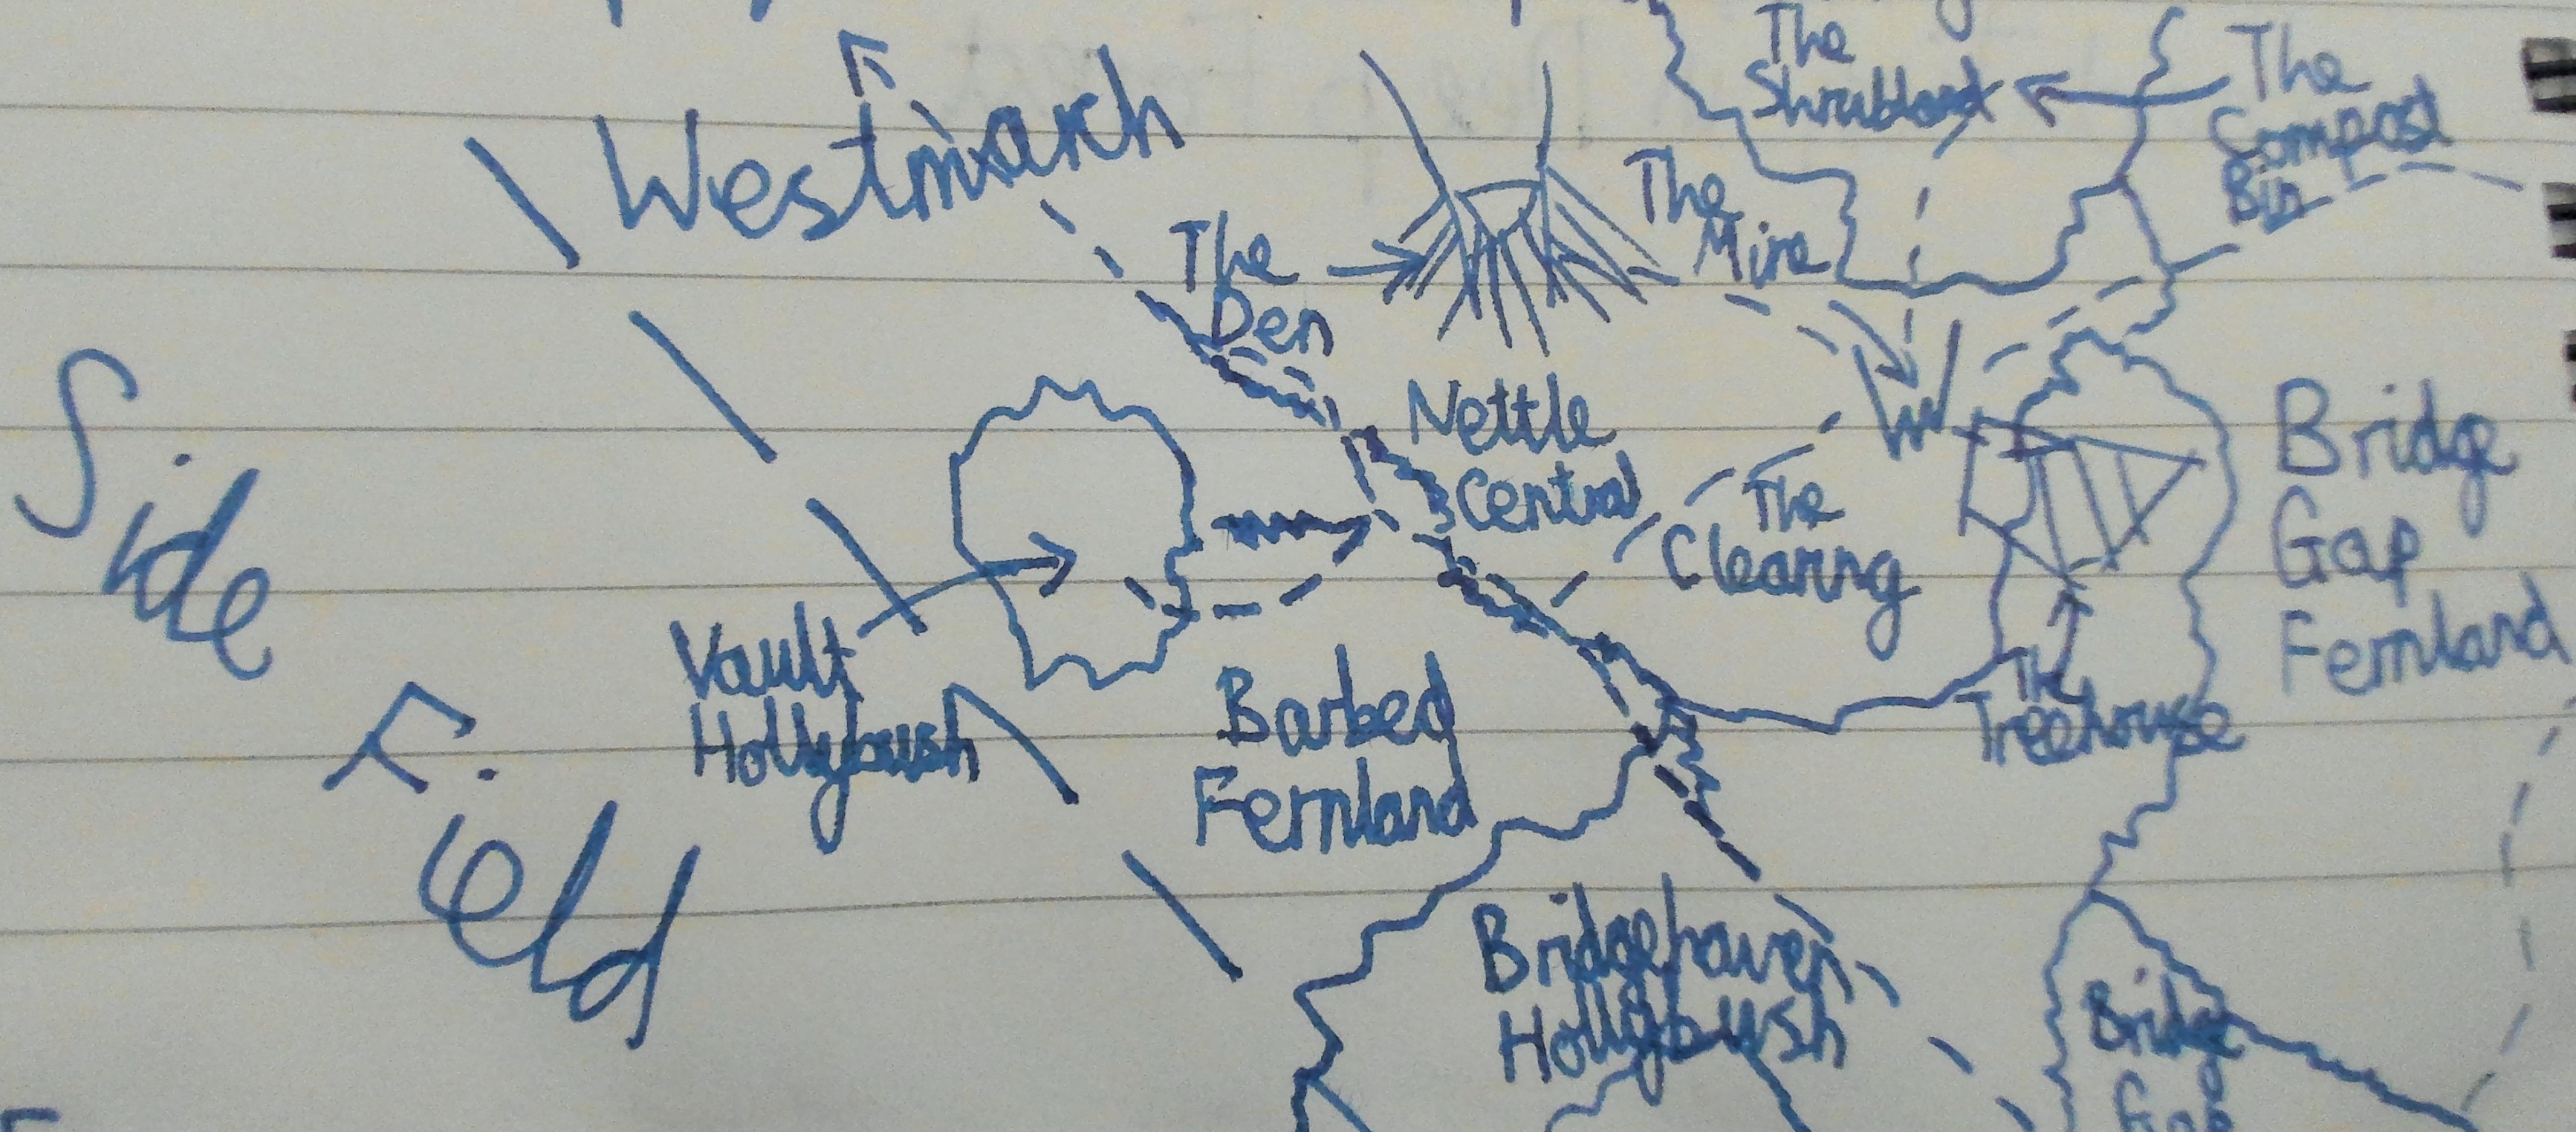 The
Shrubland
The
Compost
Bin
Westmarch
The
Mire
The
Den
Nettle
Central
The
Clearing
Bridge
Gap
Fernland
Side
Field
Vault
Hollybush
Barbed
Fernland
The
Treehouse
Bridgehaven
Hollybush
Bridge
Gap